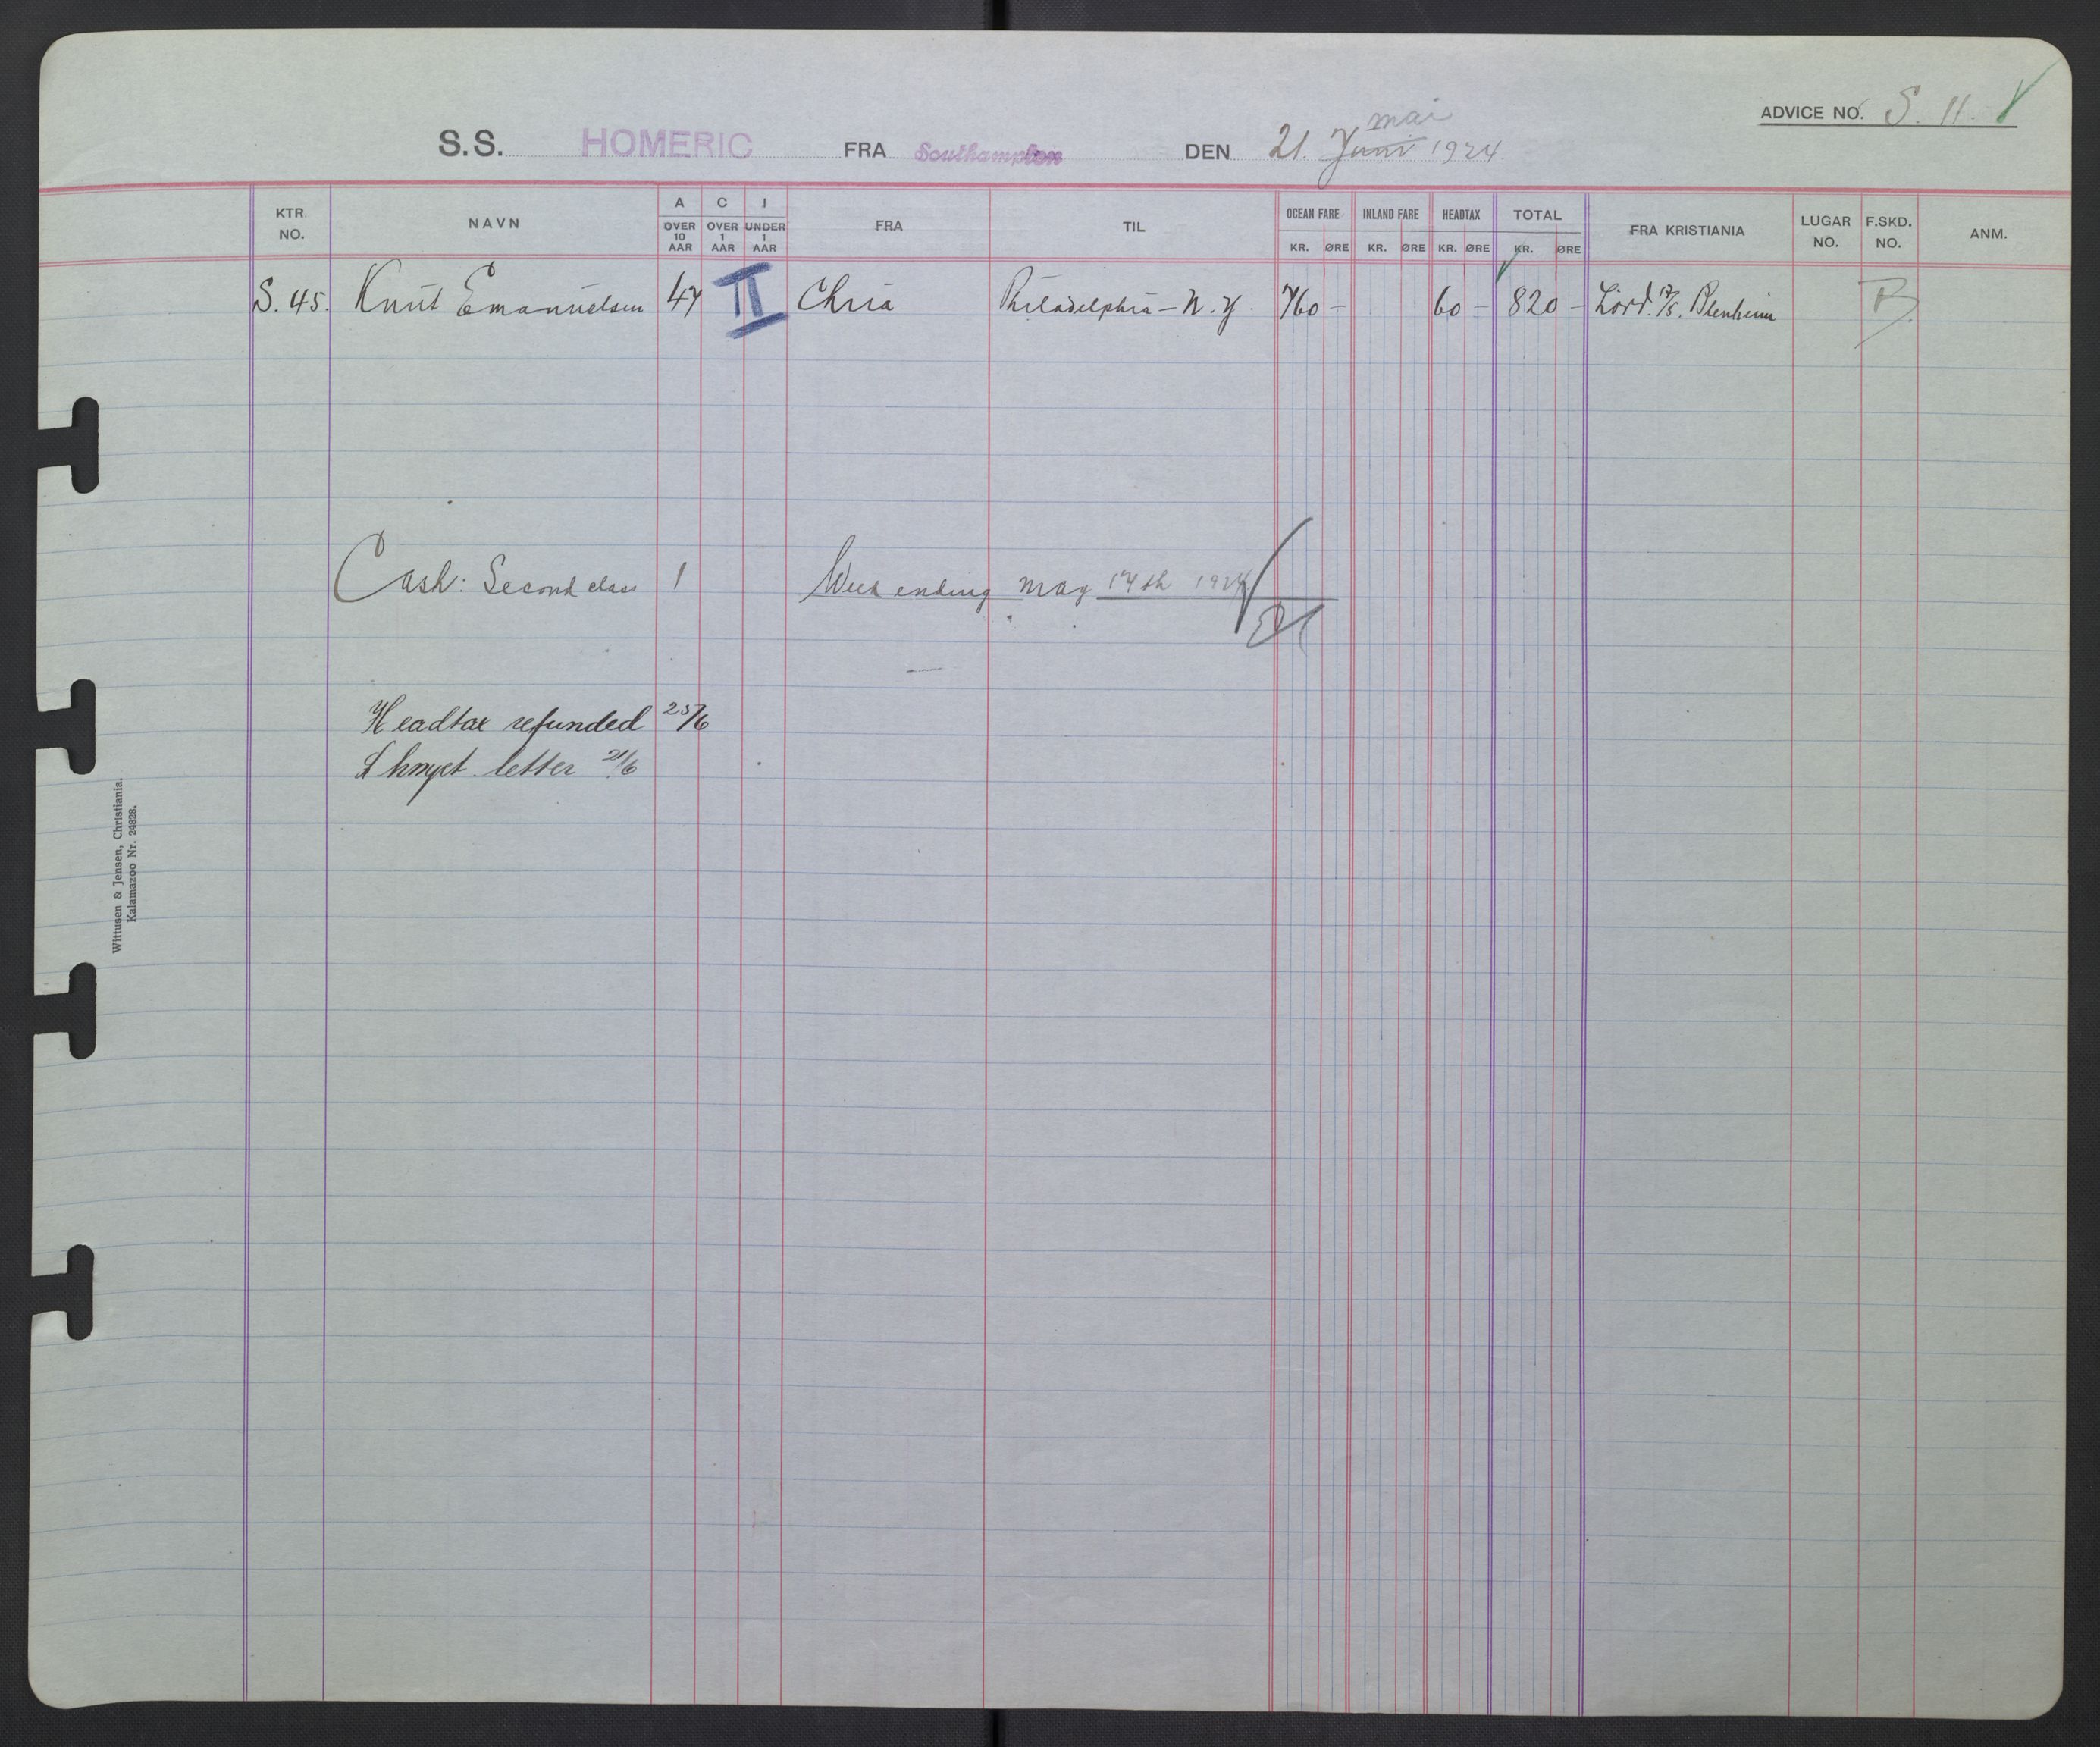 ADVICE NO. S. 11.
mai
S.S. HOMERIC FRA Southampton DEN 21. Juni 1924
KTR. NO. NAVN A OVER 10 AAR C OVER 1 AAR I UNDER 1 AAR FRA TIL OCEAN FARE KR. ØRE INLAND FARE KR. ØRE HEADTAX KR. ØRE TOTAL KR. ØRE FRA KRISTIANIA LUGAR NO. F.SKD. NO. ANM.
S. 45. Knut Emanuelsen 47 II Chria Philadelphia - N.Y. 760 - 60 - 820 - Lörd. 17/5. Blenheim B
Cash: Second class 1 Week ending May 17th 1924
Headtax refunded 25/6
letter 21/6
Wittusen & Jensen, Christiania.
Kalamazoo Nr. 24828.